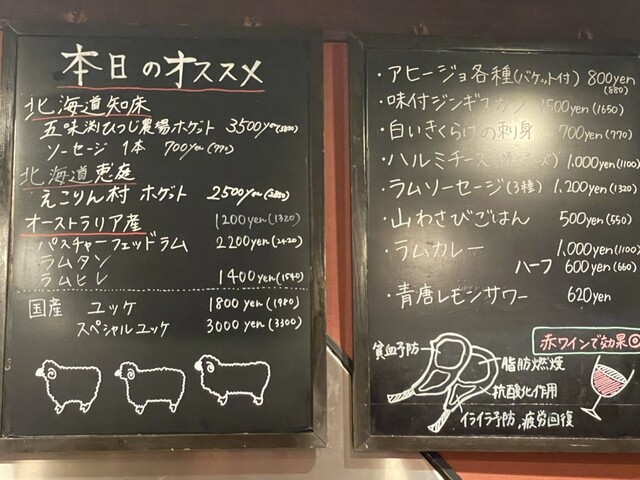 本日のオススメ
北海道知床
五味渕ひつじ農場ホゲット 3500yen(3850)
ソーセージ 1本 700yen(770)
北海道恵庭
えこりん村 ホゲット 2500yen
オーストラリア産 1200yen(1320)
パスチャーフェッドラム 2200yen(2420)
ラムタン
ラムヒレ 1400yen(1540)
国産 ユッケ 1800yen(1980)
スペシャルユッケ 3000yen(3300)
・アヒージョ各種(バケット付) 800yen
(880)
・味付ジンギスカン 1500yen(1650)
・白いきくらげの刺身 700yen(770)
・ハルミチーズ 1,000yen(1100)
・ラムソーセージ(3種) 1,200yen(1320)
・山わさびごはん 500yen(550)
・ラムカレー 1,000yen(1100)
ハーフ 600yen(660)
・青唐レモンサワー 620yen
赤ワインで効果◎
貧血予防
脂肪燃焼
抗酸化作用
イライラ予防、疲労回復